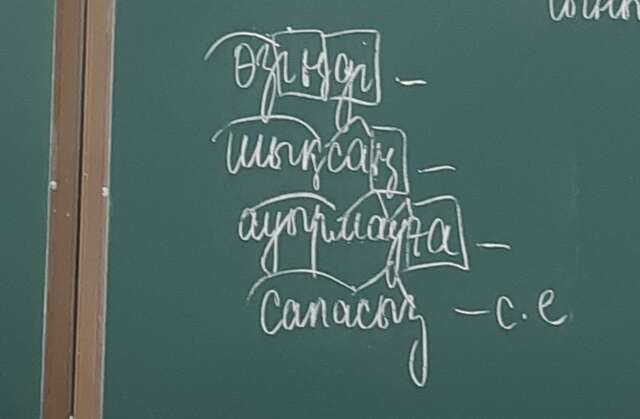 өзіңді –
шықсаң –
ауырмауға –
сапасыз – с.е